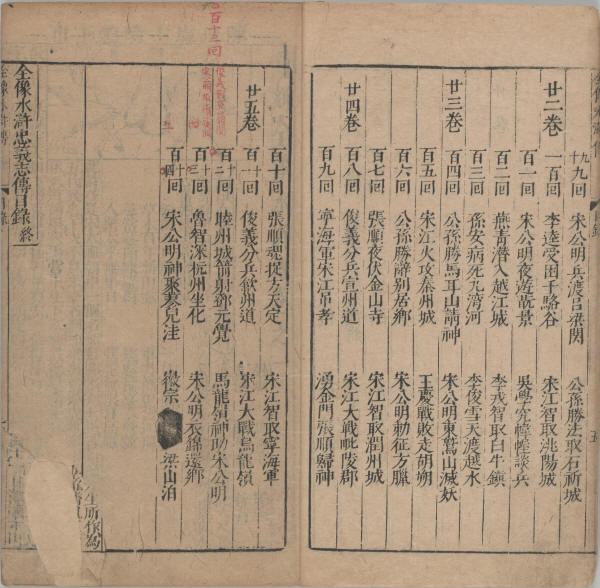 九十九回 宋公明兵渡呂梁関 公孫勝法取石祈城
廿二卷
一百回 李逵受困于駱谷 宋江智取洮陽城
百一回 宋公明夜遊翫景 吳學究帷幄談兵
百二回 燕青潜入越江城 李戎智取白牛鎮
百三回 孫安病死九湾河 李俊雪天渡越水
廿三卷
百四回 公孫勝馬耳山請神 宋公明東鷲山滅妖
百五回 宋江火攻秦州城 王慶戰敗走胡朔
百六回 公孫勝辭别居鄉 宋公明勅征方臘
百七回 張順夜伏金山寺 宋江智取潤州城
廿四卷
百八回 俊義分兵宣州道 宋江大戰毗陵郡
百九回 寧海軍宋江吊孝 湧金門張順歸神
百十回 張順魂捉方天定 宋江智取寧海軍
廿五卷
百十一回 俊義分兵歙州道 宋江大戰烏龍嶺
百十二回 睦州城箭射鄧元覺 馬龍嶺神助宋公明
百十三回 魯智深杭州坐化 宋公明衣錦還鄉
百十四回 宋公明神聚蓼兒洼 徽宗 梁山泊
百十三回
全像水滸忠義志傳目錄 終